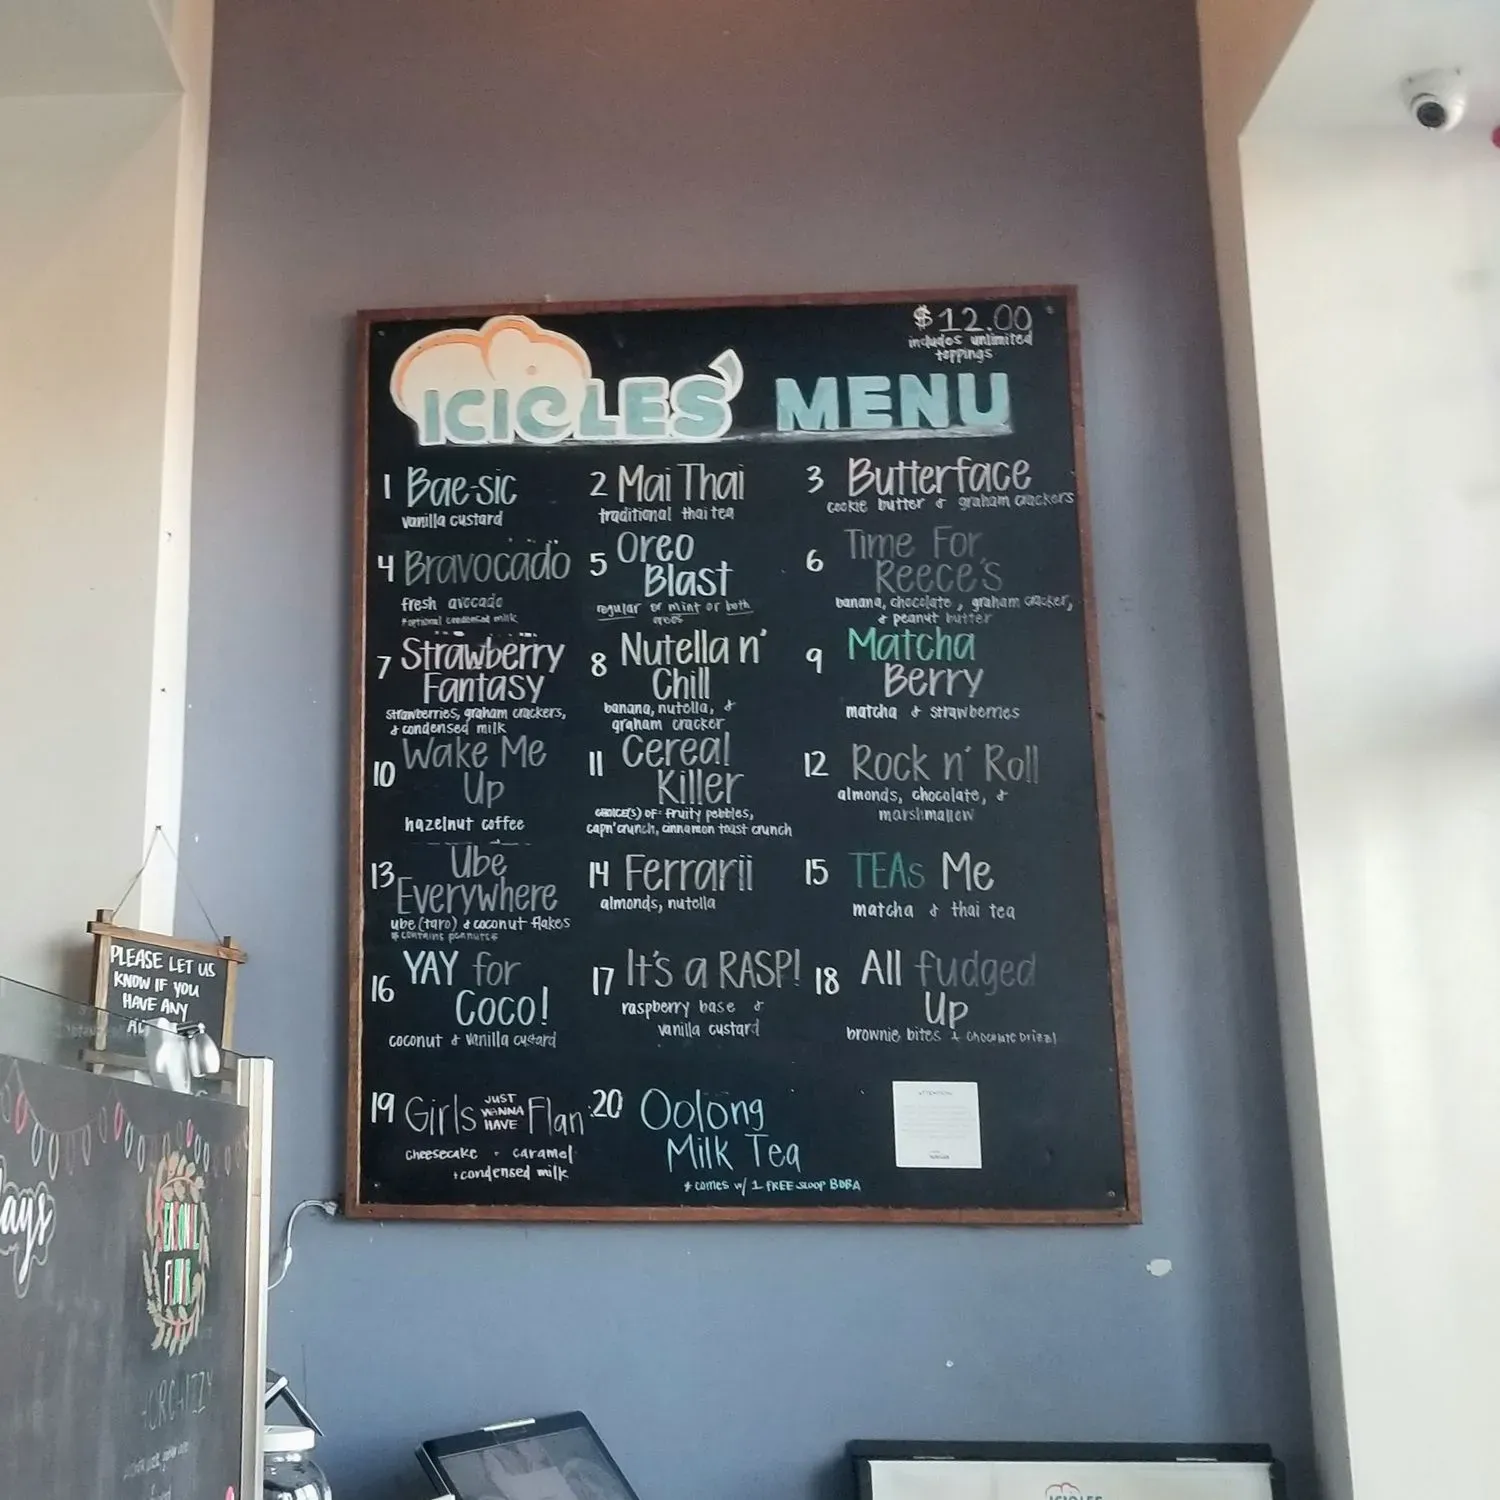 $12.00
includes unlimited
toppings
ICICLES' MENU
1 Bae-sic
vanilla custard
2 Mai Thai
traditional thai tea
3 Butterface
cookie butter & graham crackers
4 Bravocado
fresh avocado
*optional condensed milk
5 Oreo
Blast
regular or mint or both
oreos
6 Time For
Reece's
banana, chocolate, graham cracker,
& peanut butter
7 Strawberry
Fantasy
strawberries, graham crackers,
& condensed milk
8 Nutella n'
Chill
banana, nutella, &
graham cracker
9 Matcha
Berry
matcha & strawberries
10 Wake Me
Up
hazelnut coffee
11 Cereal
Killer
choice(s) of: fruity pebbles,
capn'crunch, cinnamon toast crunch
12 Rock n' Roll
almonds, chocolate, &
marshmallow
13 Ube
Everywhere
ube (taro) & coconut flakes
*contains peanuts*
14 Ferrarii
almonds, nutella
15 TEAs Me
matcha & thai tea
16 YAY for
Coco!
coconut & vanilla custard
17 It's a RASP!
raspberry base &
vanilla custard
18 All fudged
Up
brownie bites + chocolate drizzl
19 Girls JUST WANNA HAVE Flan
cheesecake + caramel
+condensed milk
20 Oolong
Milk Tea
* comes w/ 1 FREE SCOOP BOBA
ATTENTION
PLEASE LET US
KNOW IF YOU
HAVE ANY
ays
ICICLES